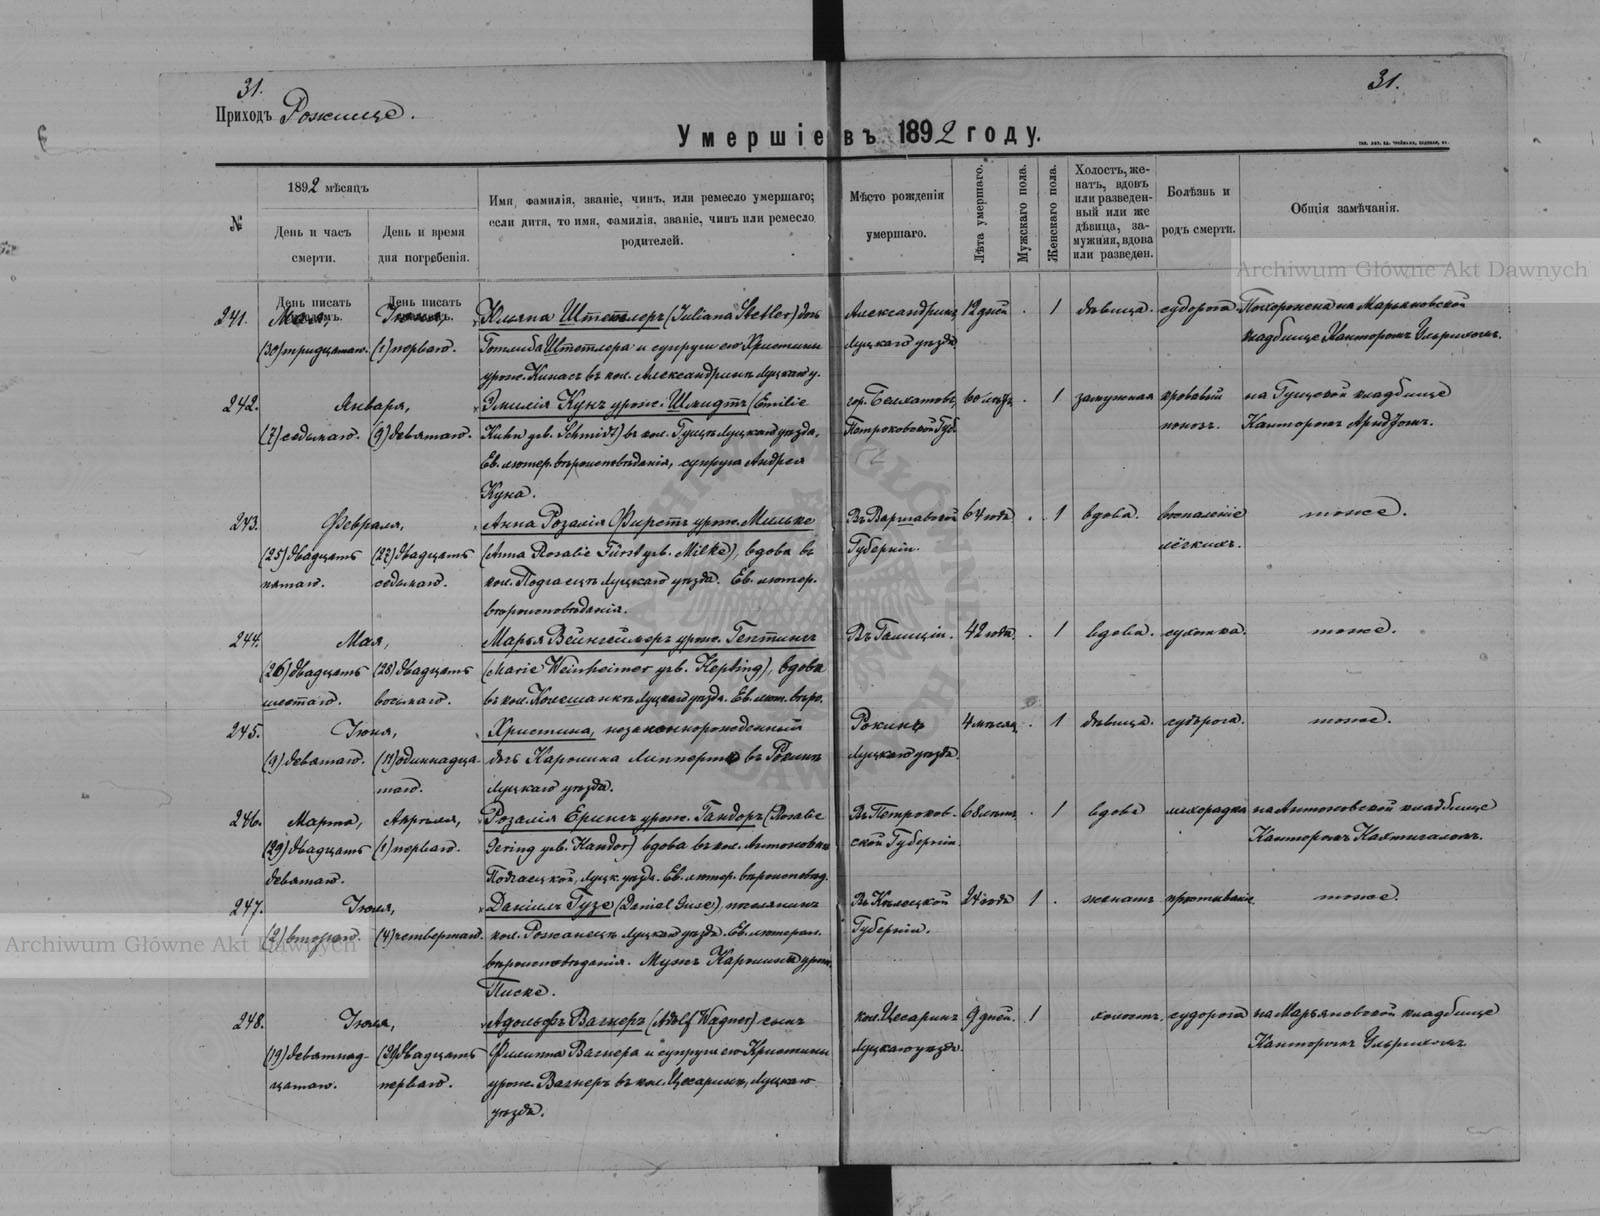 31.
31.
Приходъ Рожище.
Умершіе въ 1892 году.
№
1892 мѣсяцъ
День и часъ смерти.
День и время дня погребенія.
Имя, фамилія, званіе, чинъ, или ремесло умершаго;
если дитя, то имя, фамилія, званіе, чинъ или ремесло
родителей.
Мѣсто рожденія
умершаго.
Лѣта умершаго.
Мужскаго пола.
Женскаго пола.
Холостъ, же-
натъ, вдовъ
или разведен-
ный или же
дѣвица, за-
мужняя, вдова
или разведен.
Болѣзнь и
родъ смерти.
Общія замѣчанія.
День писать
День писать
241. Мая, Іюня, Юльяна Штетлеръ (Juliana Stetler) дочь Александринъ 12 дней . 1 дѣвица. судорога. Похоронена на Марьяновской
(30) тридцатаго. (1) перваго. Готлиба Штетлера и супруги его Христины Луцкаго уѣзда. кладбище Канторомъ Ульрихомъ.
урож. въ кол. Александринъ Луцкаго у.
242. Января, Эмилія Кунъ урож. Шмидтъ (Emilie гор. Белхатовъ, 60 лѣтъ . 1 замужная кровавый на Гущской кладбище
(7) седьмаго. (9) девятаго. Kuhn geb. Schmidt) въ кол. Гущѣ Луцкаго уѣзда, Петроковской Губ. поносъ. Канторомъ
Ев. лютер. вѣроисповѣданія, супруга Андрея
Куна.
243. Февраля, Анна Розалія Фирстъ урож. Мильке Въ Варшавской 64 года . 1 вдова. воспаленіе тоже.
(25) двадцать (27) двадцать (Anna Rosalie Fürst geb. Milke), вдова въ Губерніи. лёгкихъ.
пятаго. седьмаго. кол. Подгаецъ Луцкаго уѣзда. Ев. лютер.
вѣроисповѣданія.
244. Мая, Марья Вейнгеймеръ урож. Гептингъ Въ Галиціи. 42 года . 1 вдова. сухотка. тоже.
(26) двадцать (28) двадцать (Marie Weinheimer geb. Hepting), вдова
шестаго. восьмаго. въ кол. Луцкаго уѣзда. Ев. лют. вѣро.
245. Іюня, Христина, незаконнорожденный Рокинъ 4 мѣсяц. . 1 дѣвица. судорога. тоже.
(9) девятаго. (11) одиннадца- дочь Каролина Липпертъ въ Рокинѣ Луцкаго уѣзда.
таго. Луцкаго уѣзда.
246. Марта, Апрѣля, Розалія Ерингъ урож. Гандоръ (Rosalie Въ Петроков- 68 лѣтъ . 1 вдова лихорадка на Антоновской кладбище
(29) двадцать (1) перваго. Jering geb. Kandor) вдова въ кол. Антоновка ской Губерніи. Канторомъ
девятаго. Подгаецкой, Луцк. уѣзда. Ев. лютер. вѣроисповѣд.
247. Іюня, Даніилъ Гузе (Daniel Guse), поселянинъ Въ Кѣлецкой 24 года 1 . женатъ тоже.
(2) втораго. (4) четвертаго. кол. Рожанецъ Луцкаго уѣзда. Ев. лютеран. Губерніи.
вѣроисповѣданія. Мужъ Каролины урож.
Писке.
248. Іюля, Адольфъ Вагнеръ (Adolf Wagner) сынъ кол. Цесаринъ 9 дней. 1 холостъ. судорога на Марьяновской кладбище
(19) девятнад- (21) двадцать Филиппа Вагнера и супруги его Христины Луцкаго уѣзда. Канторомъ Ульрихомъ
цатаго. перваго. урож. Вагнеръ въ кол. Цесаринъ, Луцкаго
уѣзда.
Archiwum Główne Akt Dawnych
Archiwum Główne Akt Dawnych